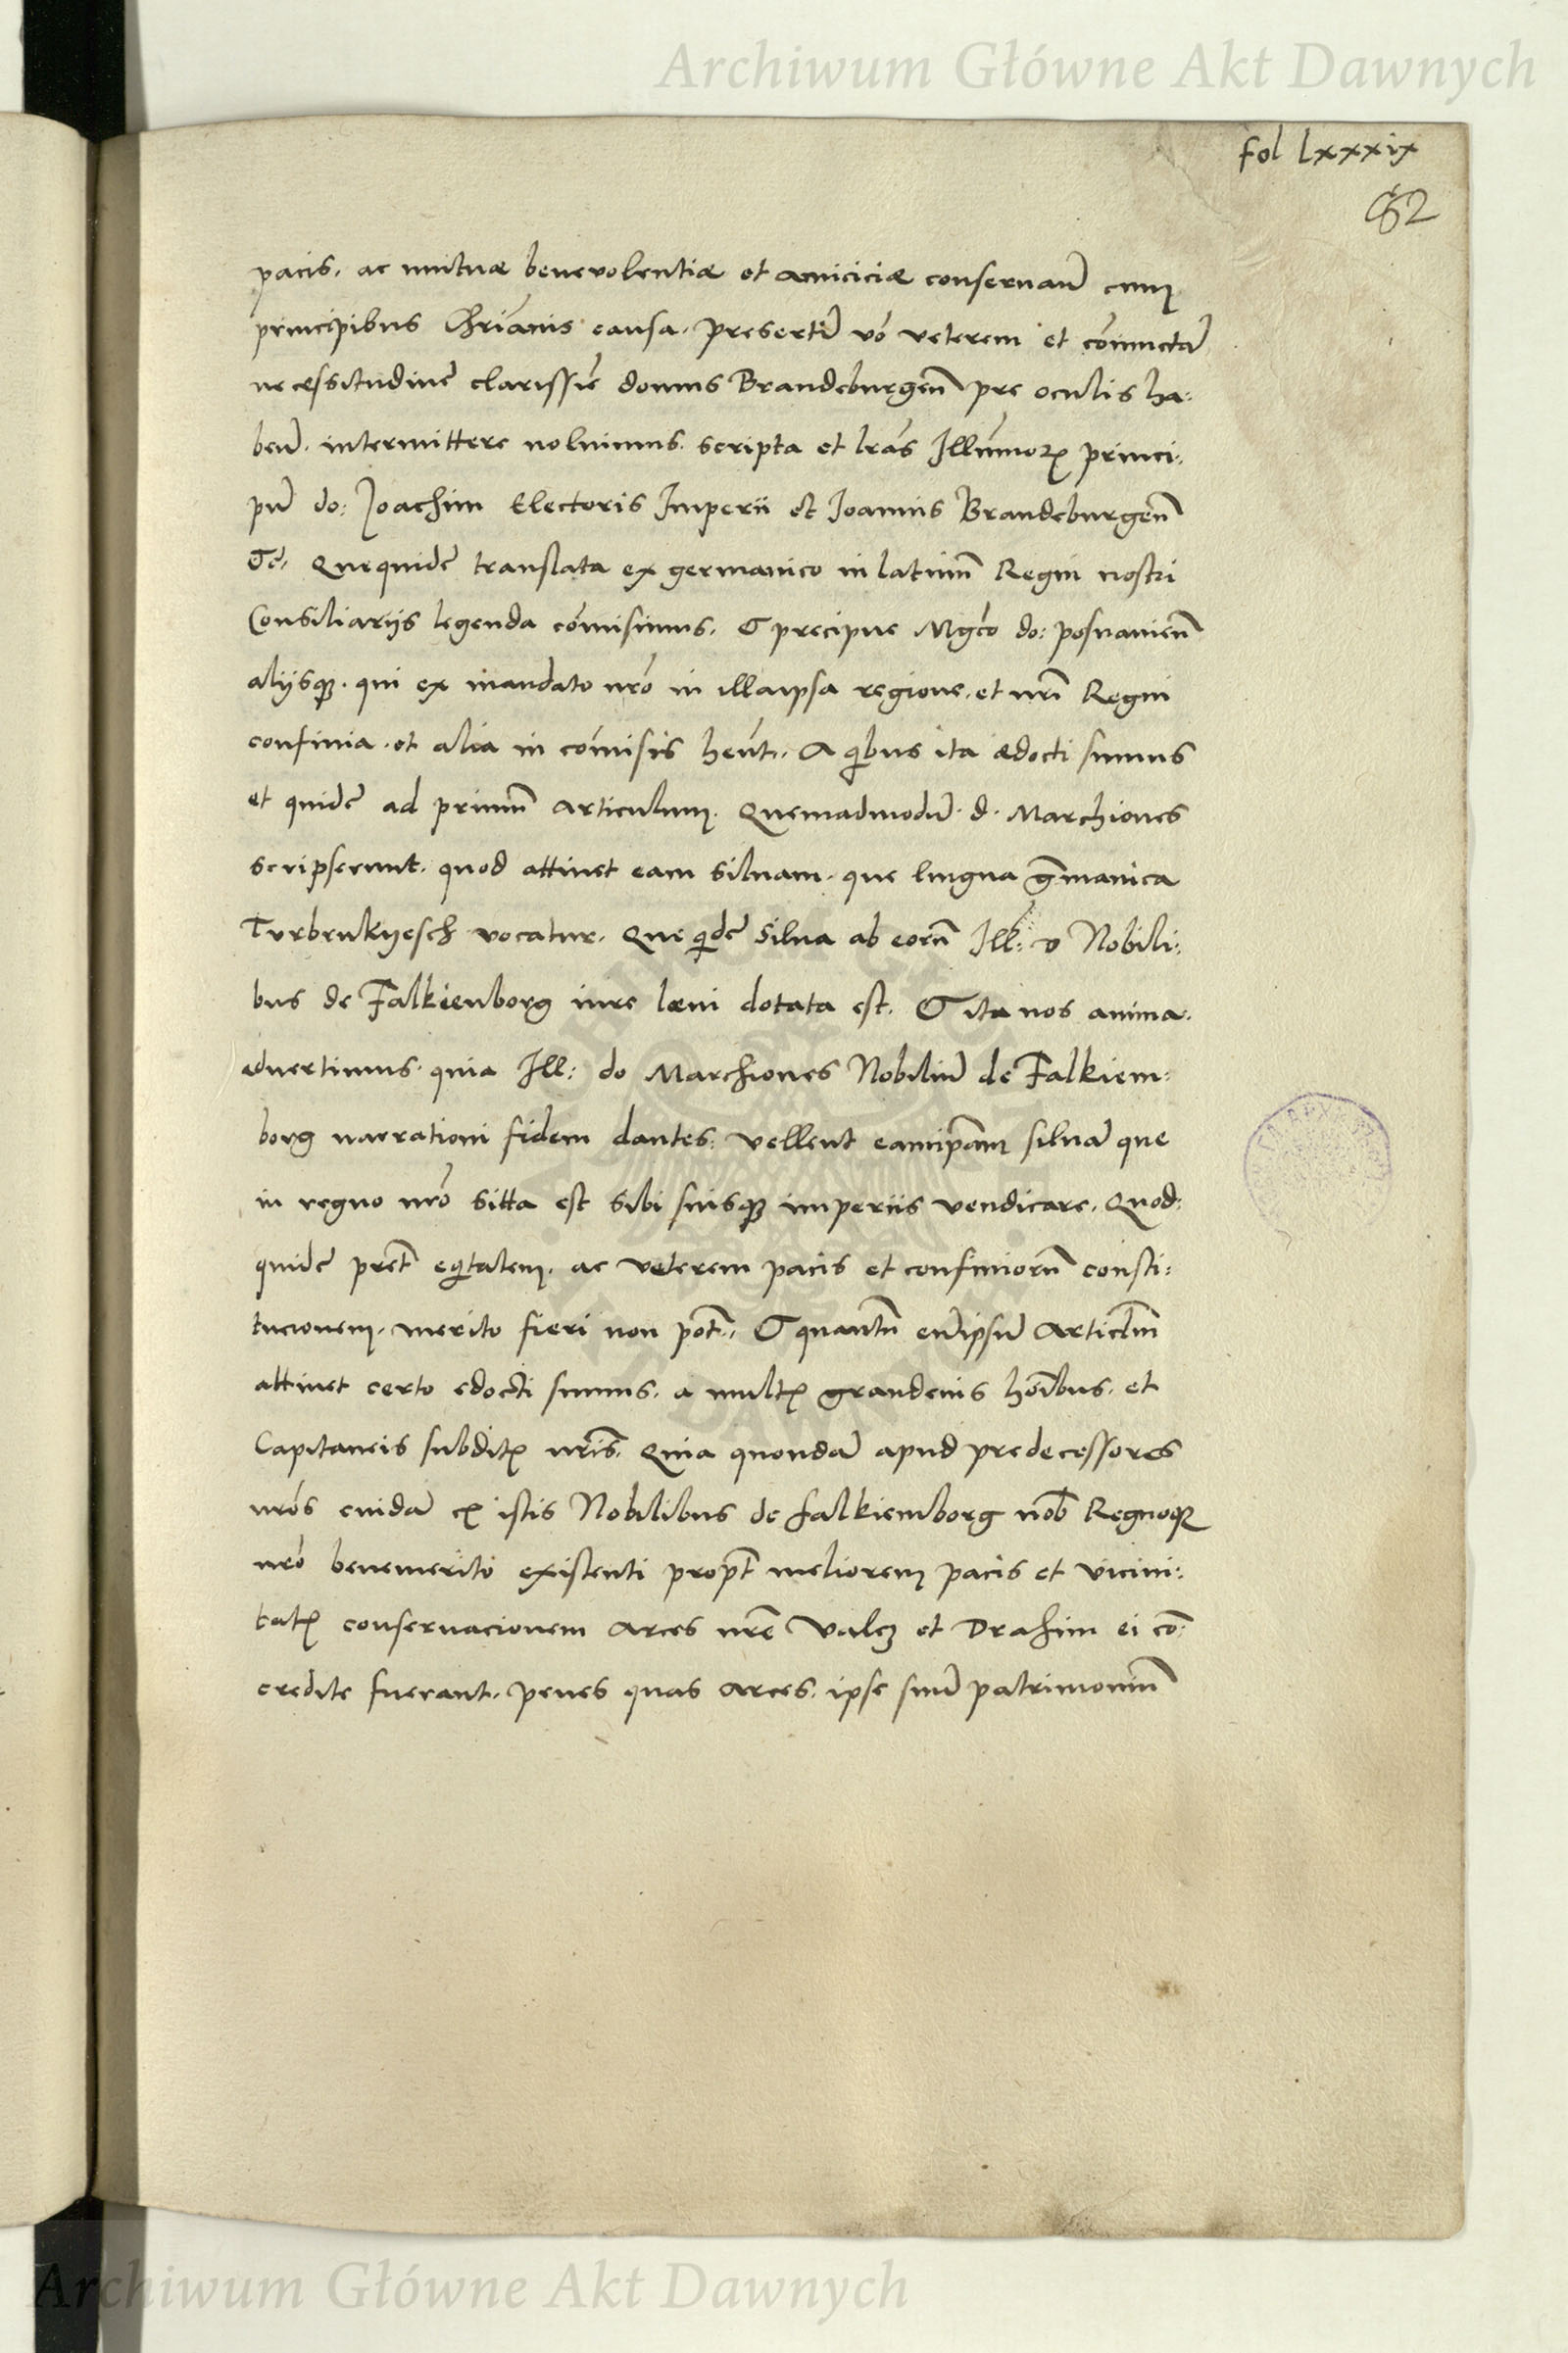 Archiwum Główne Akt Dawnych
fol lxxxix
pacis, ac mutuæ benevolentiæ et amiciciæ conservan̄ cum
principibus Chr̄ianis causa, presertī vō veterem et cōiunctā
necessitudinē clarissīe domus Brandeburgen̄ pre oculis ha:
ben̄, intermittere noluimus, scripta et l̄ras Ill̄umorꝝ princi:
pū do: Joachim Electoris Imperii et Joannis Brandeburgen̄
Ec̄, Quequidē translata ex germanico in latinū Regni nostri
Consiliariis legenda cōmisimus, Et precipue Mgc̄o do: posnanien̄
aliisqꝫ, qui ex mandato nr̄o in illaipsa regione, et nr̄i Regni
confinia, et alia in cōmisis hen̄t, A qibus ita ædocti sumus
et quidē ad primū articulum, Quemadmodū d. Marchiones
scripserunt, quod attinet eam silvam, que lingua ḡmanica
Turbrukyesch vocatur, Que qidē Silva ab eorū Ill: D Nobili:
bus de Falkienborg iure læni dotata est, Et ita nos anima.
edvertimus, quia Ill: do Marchiones Nobiliū de Falkiem:
borg narrationi fidem dantes, vellent eamip̄am silvā que
in regno nr̄o sitta est sibi suisqꝫ imperiis vendicare, Quod:
quidē pret̄ eqitatem, ac veterem pacis et confiniorū consti:
tucionem, merito fieri non pot̄, Et quantū eūipsū Articl̄m
attinet certo edocti sumus, a multꝭ grandevis hoībus, et
Capitaneis subditꝭ nr̄is, Quia quondā apud predecessores
nr̄os cuidā eꝭ istis Nobilibus de falkiemborg nob̄ Regnoqꝫ
nr̄o benemerito existenti propt̄ meliorem pacis et vicini:
tatꝭ conservacionem Arces nr̄e Valcz et Drahim ei cō:
credite fuerant, penes quas arces, ipse suū patrimoniū
Archiwum Główne Akt Dawnych